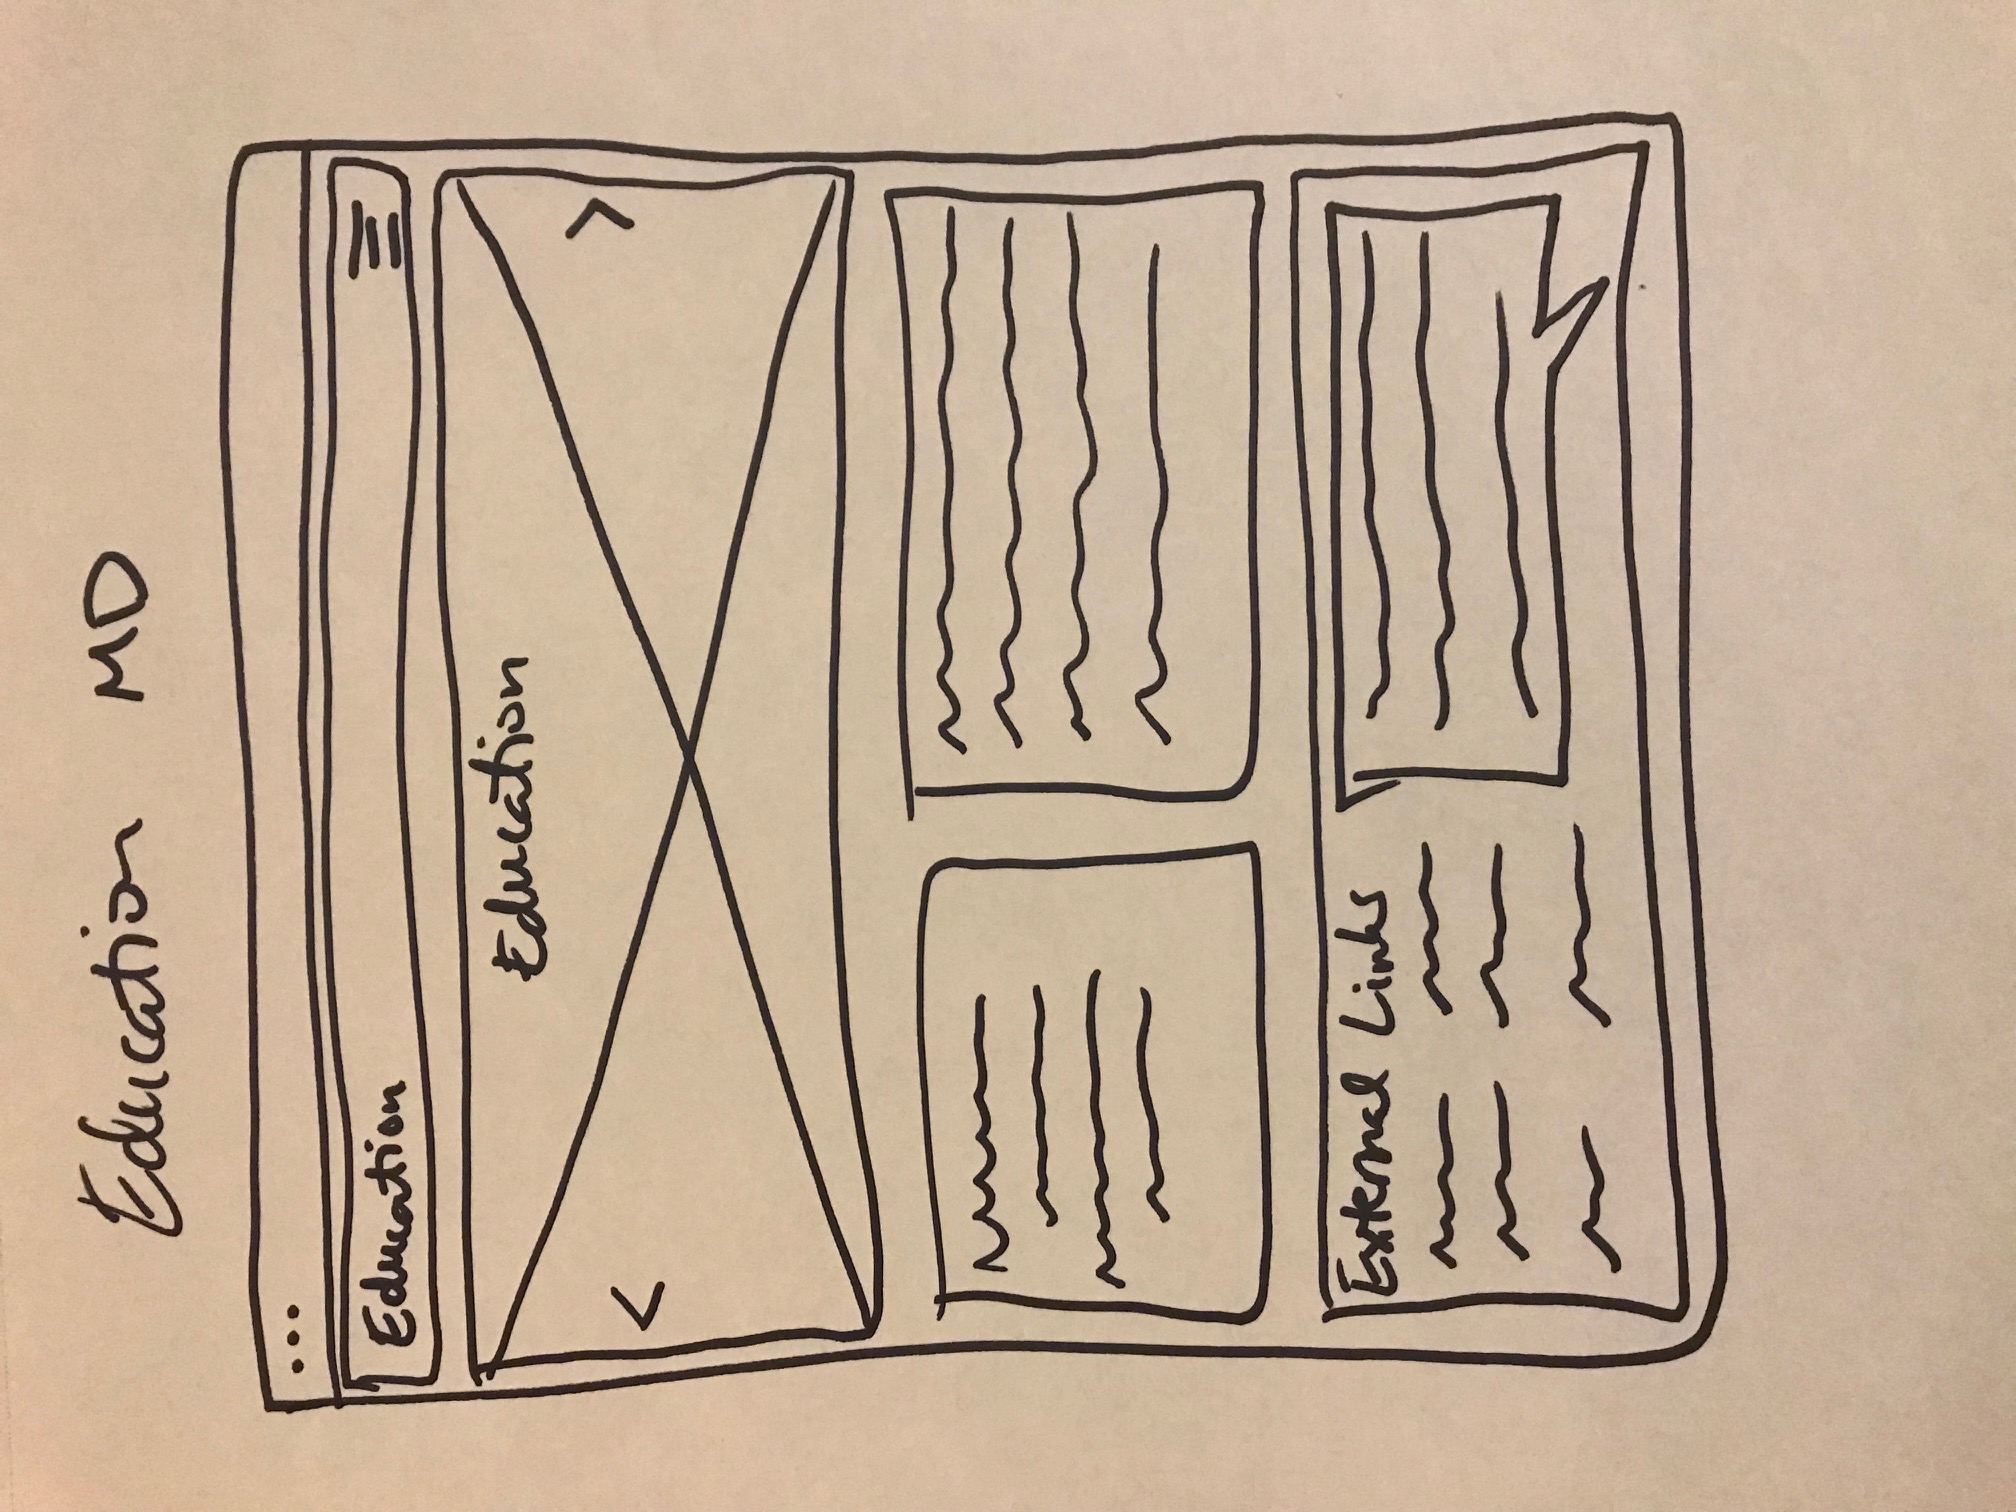 Education MD
Education
Education
External Links